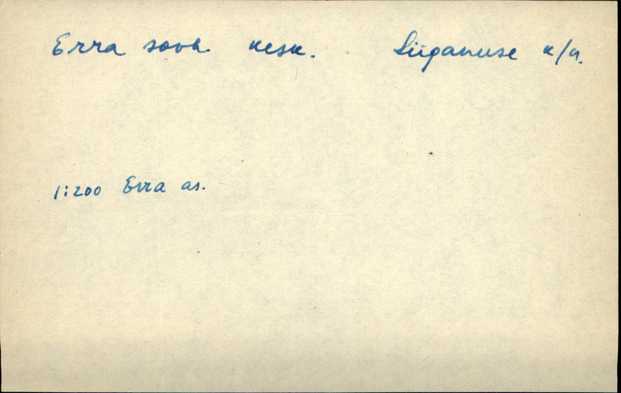 Erra sovh. kesk. Lüganuse k/n.
1:200 Erra as.